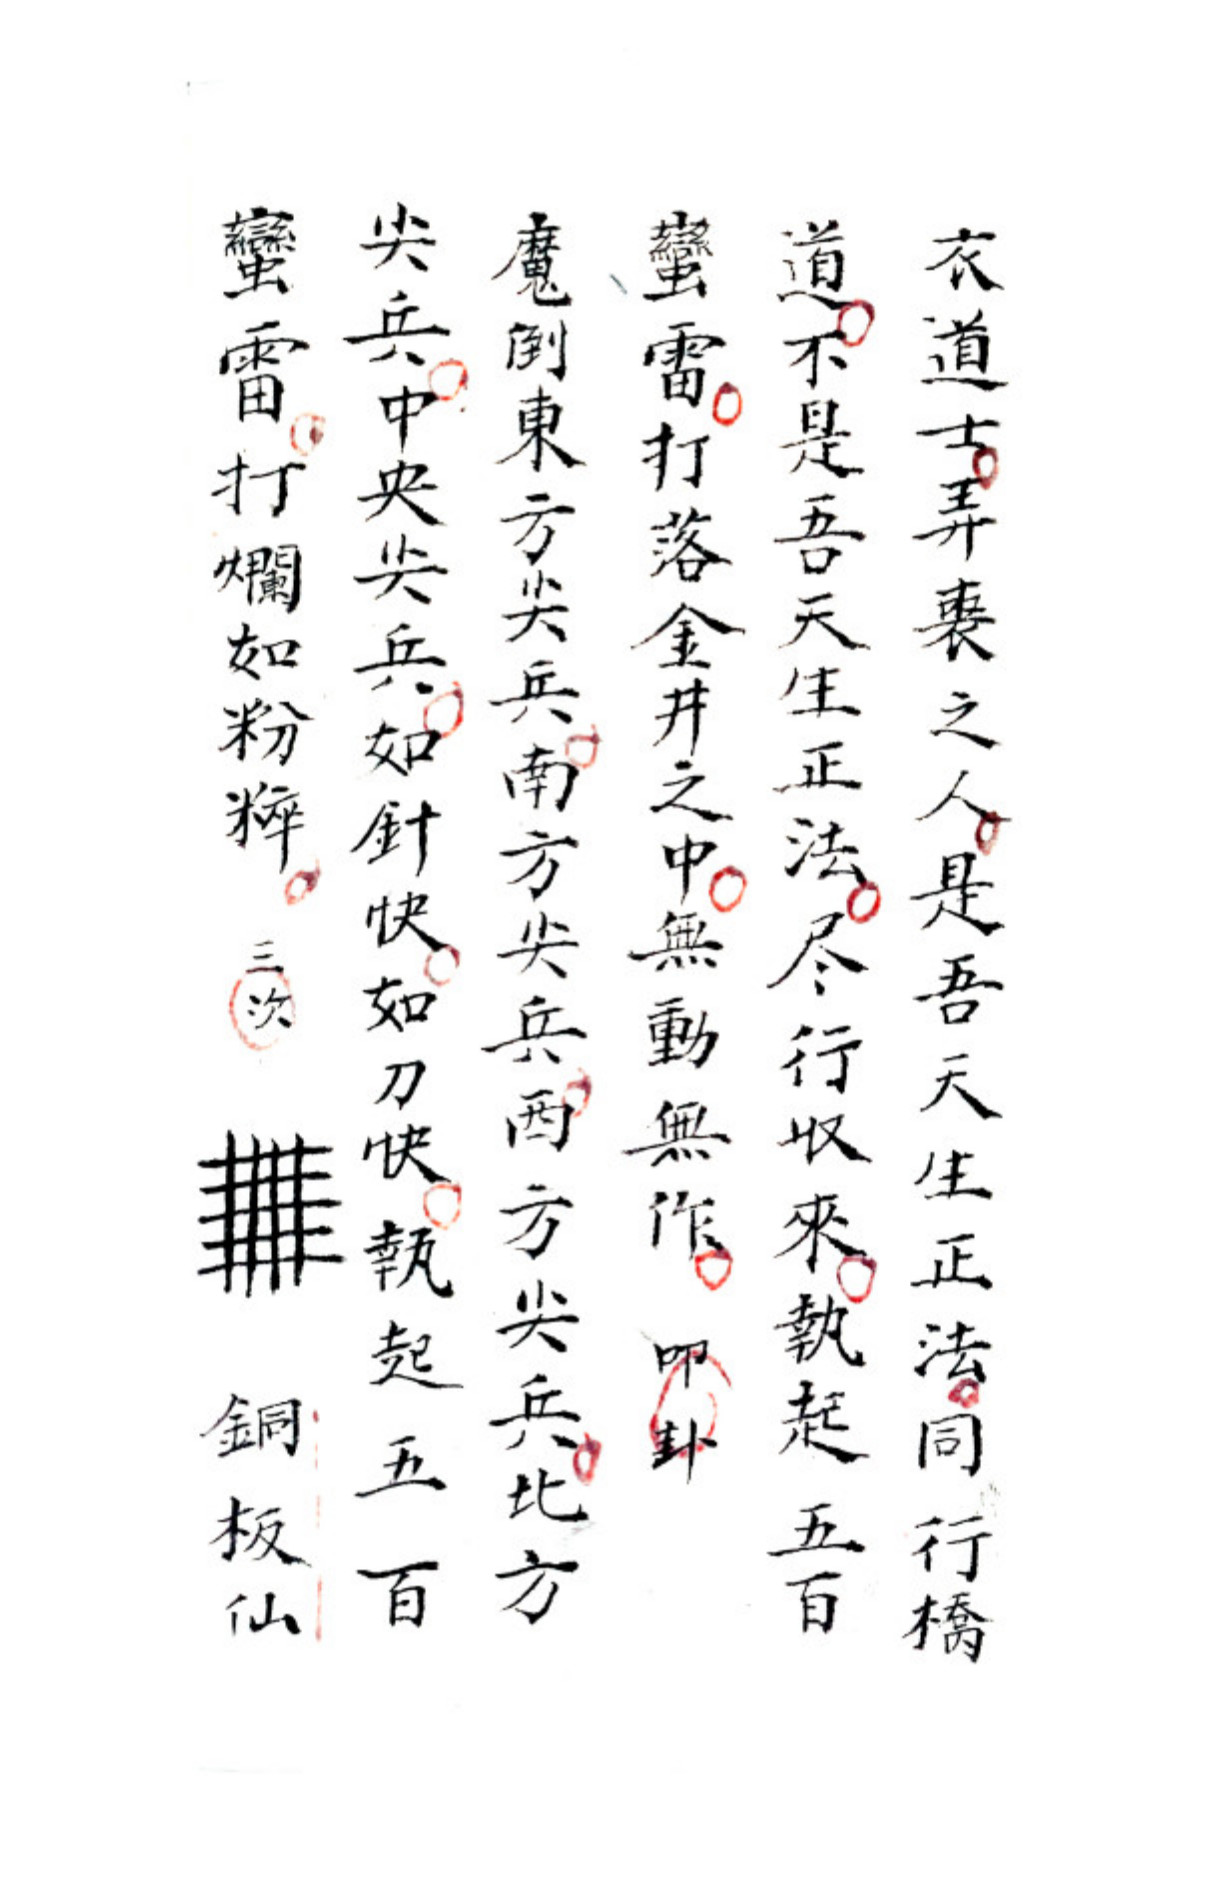 衣道士弄裹之人是吾天生正法同行橋
道不是吾天生正法尽行收來執起五百
蠻雷打落金井之中無動無作叩卦
魔倒東方尖兵南方尖兵西方尖兵北方
尖兵中央尖兵如針快如刀快執起五百
蠻雷打爛如粉粹三次銅板仙